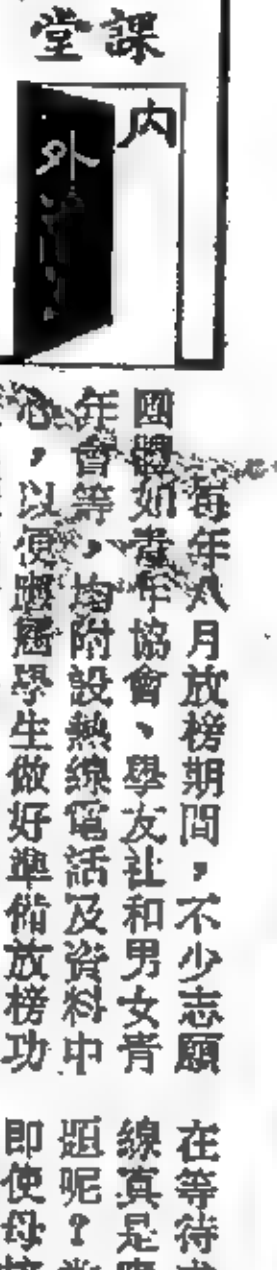 課堂
內
外
每年八月放榜期間，不少志願
團體如青年協會、學友社和男女青
年會等，均附設熱線電話及資料中
心，以便 學生做好準備放榜功
在等待
線真是
題呢？
即使母